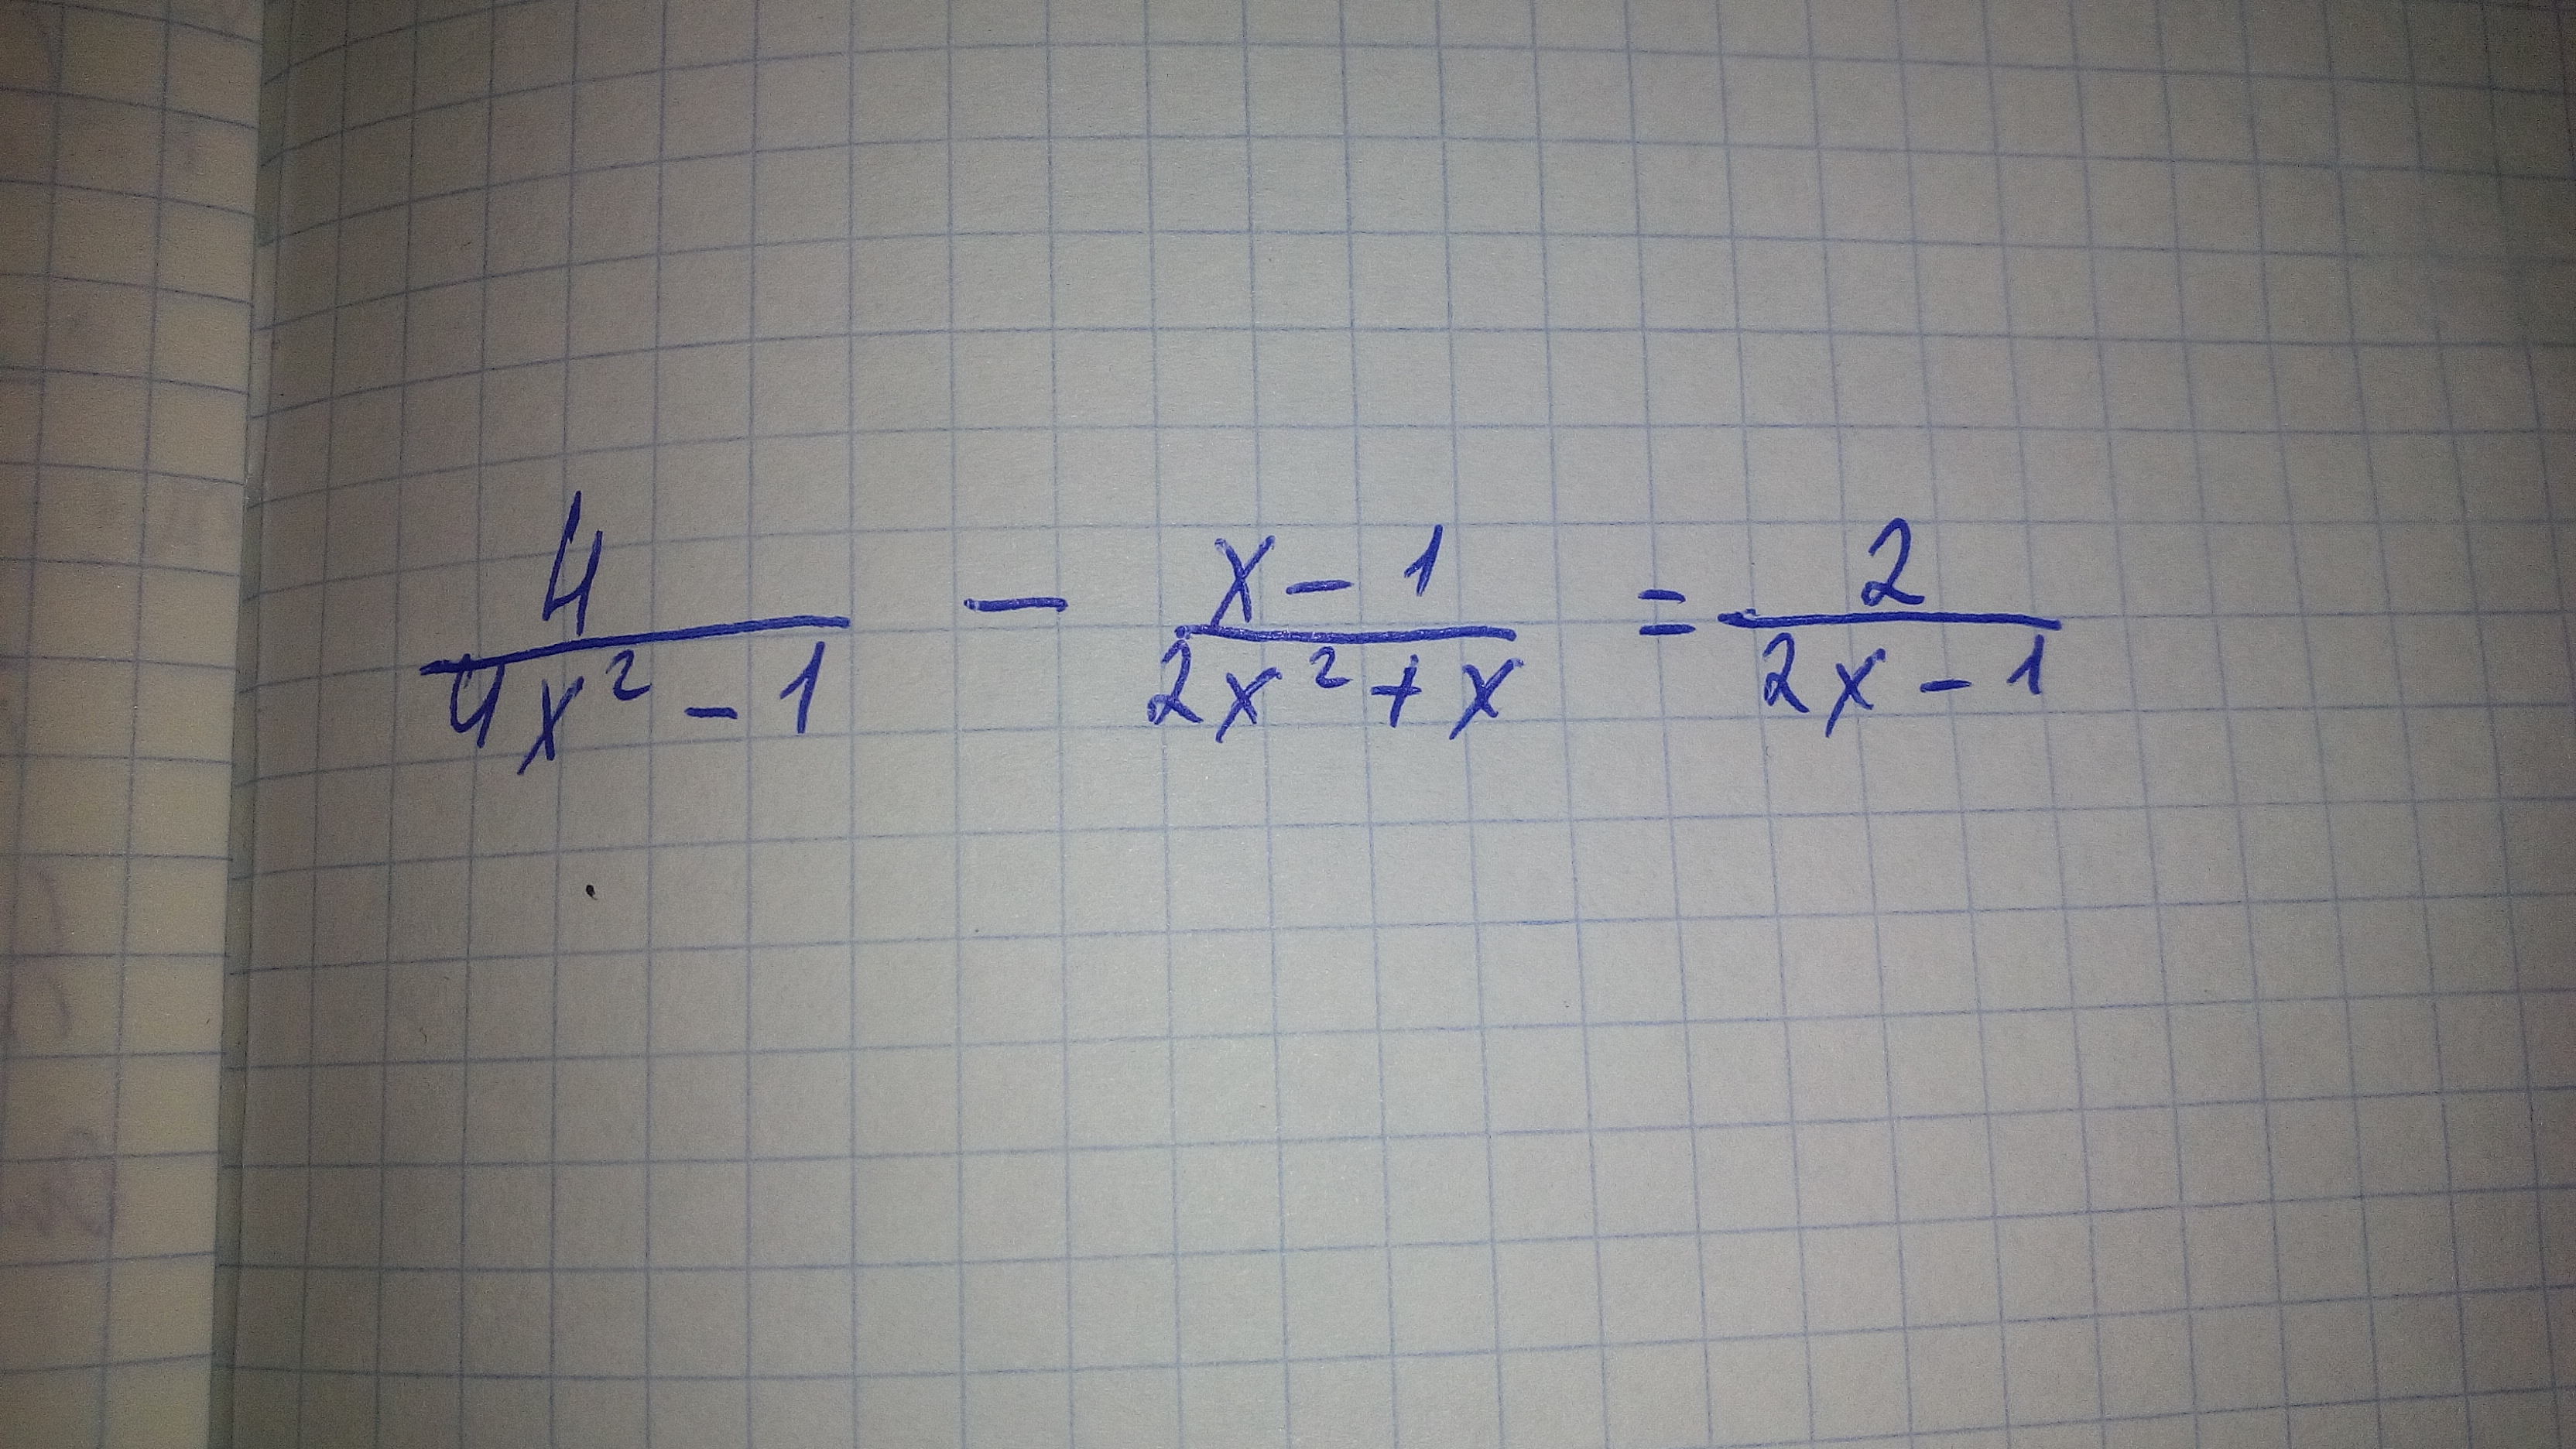 4/(4x² - 1) - (x - 1)/(2x² + x) = 2/(2x - 1)